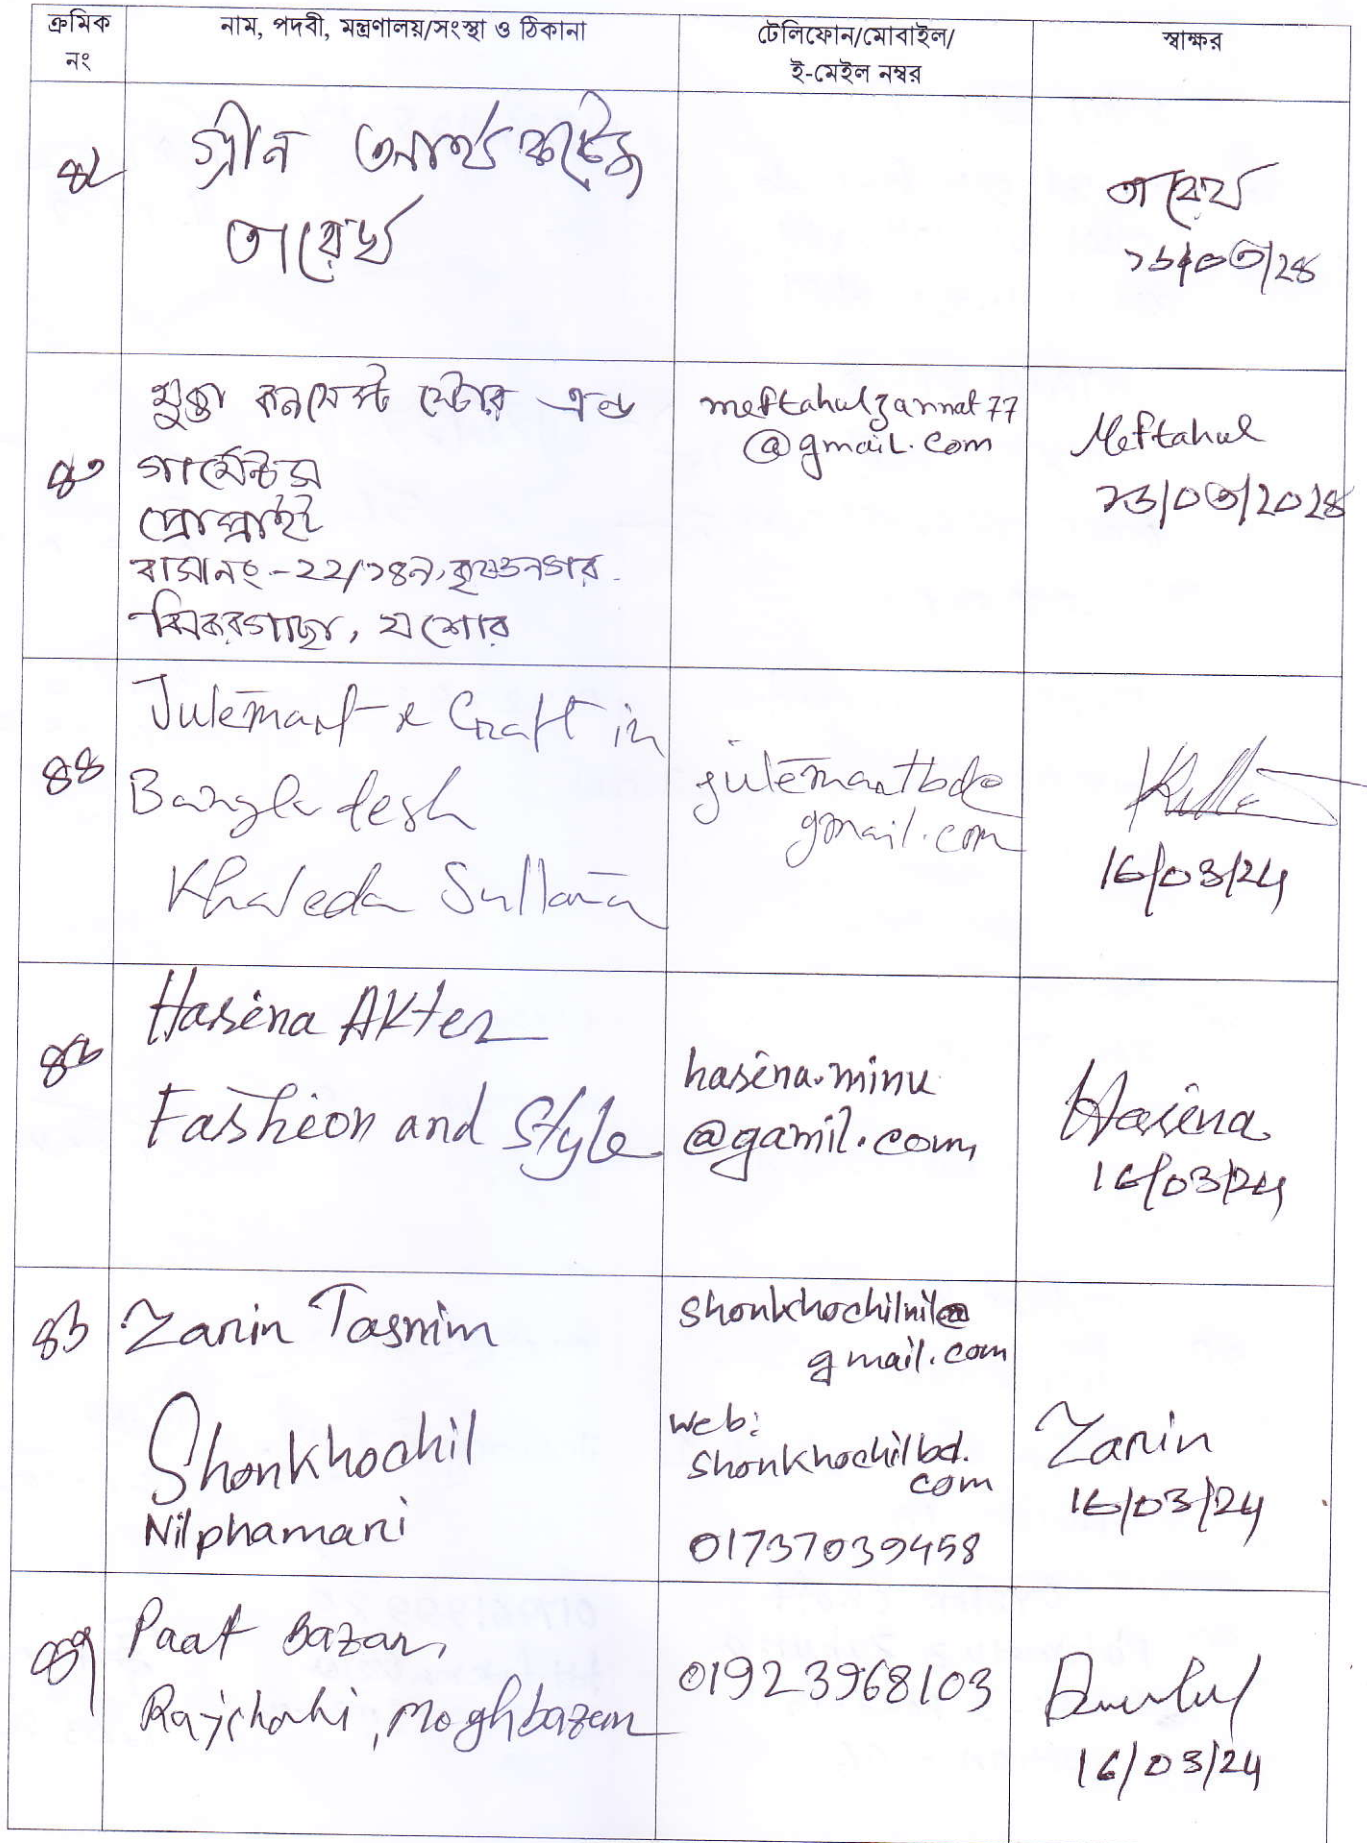 ক্রমিক নং
নাম, পদবী, মন্ত্রণালয়/সংস্থা ও ঠিকানা
টেলিফোন/মোবাইল/
ই-মেইল নম্বর
স্বাক্ষর
৪২
গ্রীন
১৬/০৩/২৪
৪৩
মুক্তা স্টোর এন্ড
গার্মেন্টস
বাসা নং-২২/১৪৭, কৃষ্ণনগর
ঝিকরগাছা, যশোর
meftahulzannat77
@gmail.com
Meftahul
১৬/০৩/২০২৪
৪৪
Jutemart & Craft in
Bangladesh
Khaleda Sultana
jutemartbd@
gmail.com
16/03/24
৪৫
Hasina Akter
Fashion and Style
hasina.minu
@gamil.com
Hasina
16/03/24
৪৬
Zarin Tasnim
Shonkhochil
Nilphamari
shonkhochilnil@
gmail.com
web:
Shonkhochilbd.
com
01737039458
Zarin
16/03/24
৪৭
Paat Bazar,
Rajshahi, Moghbazar
01923968103
16/03/24